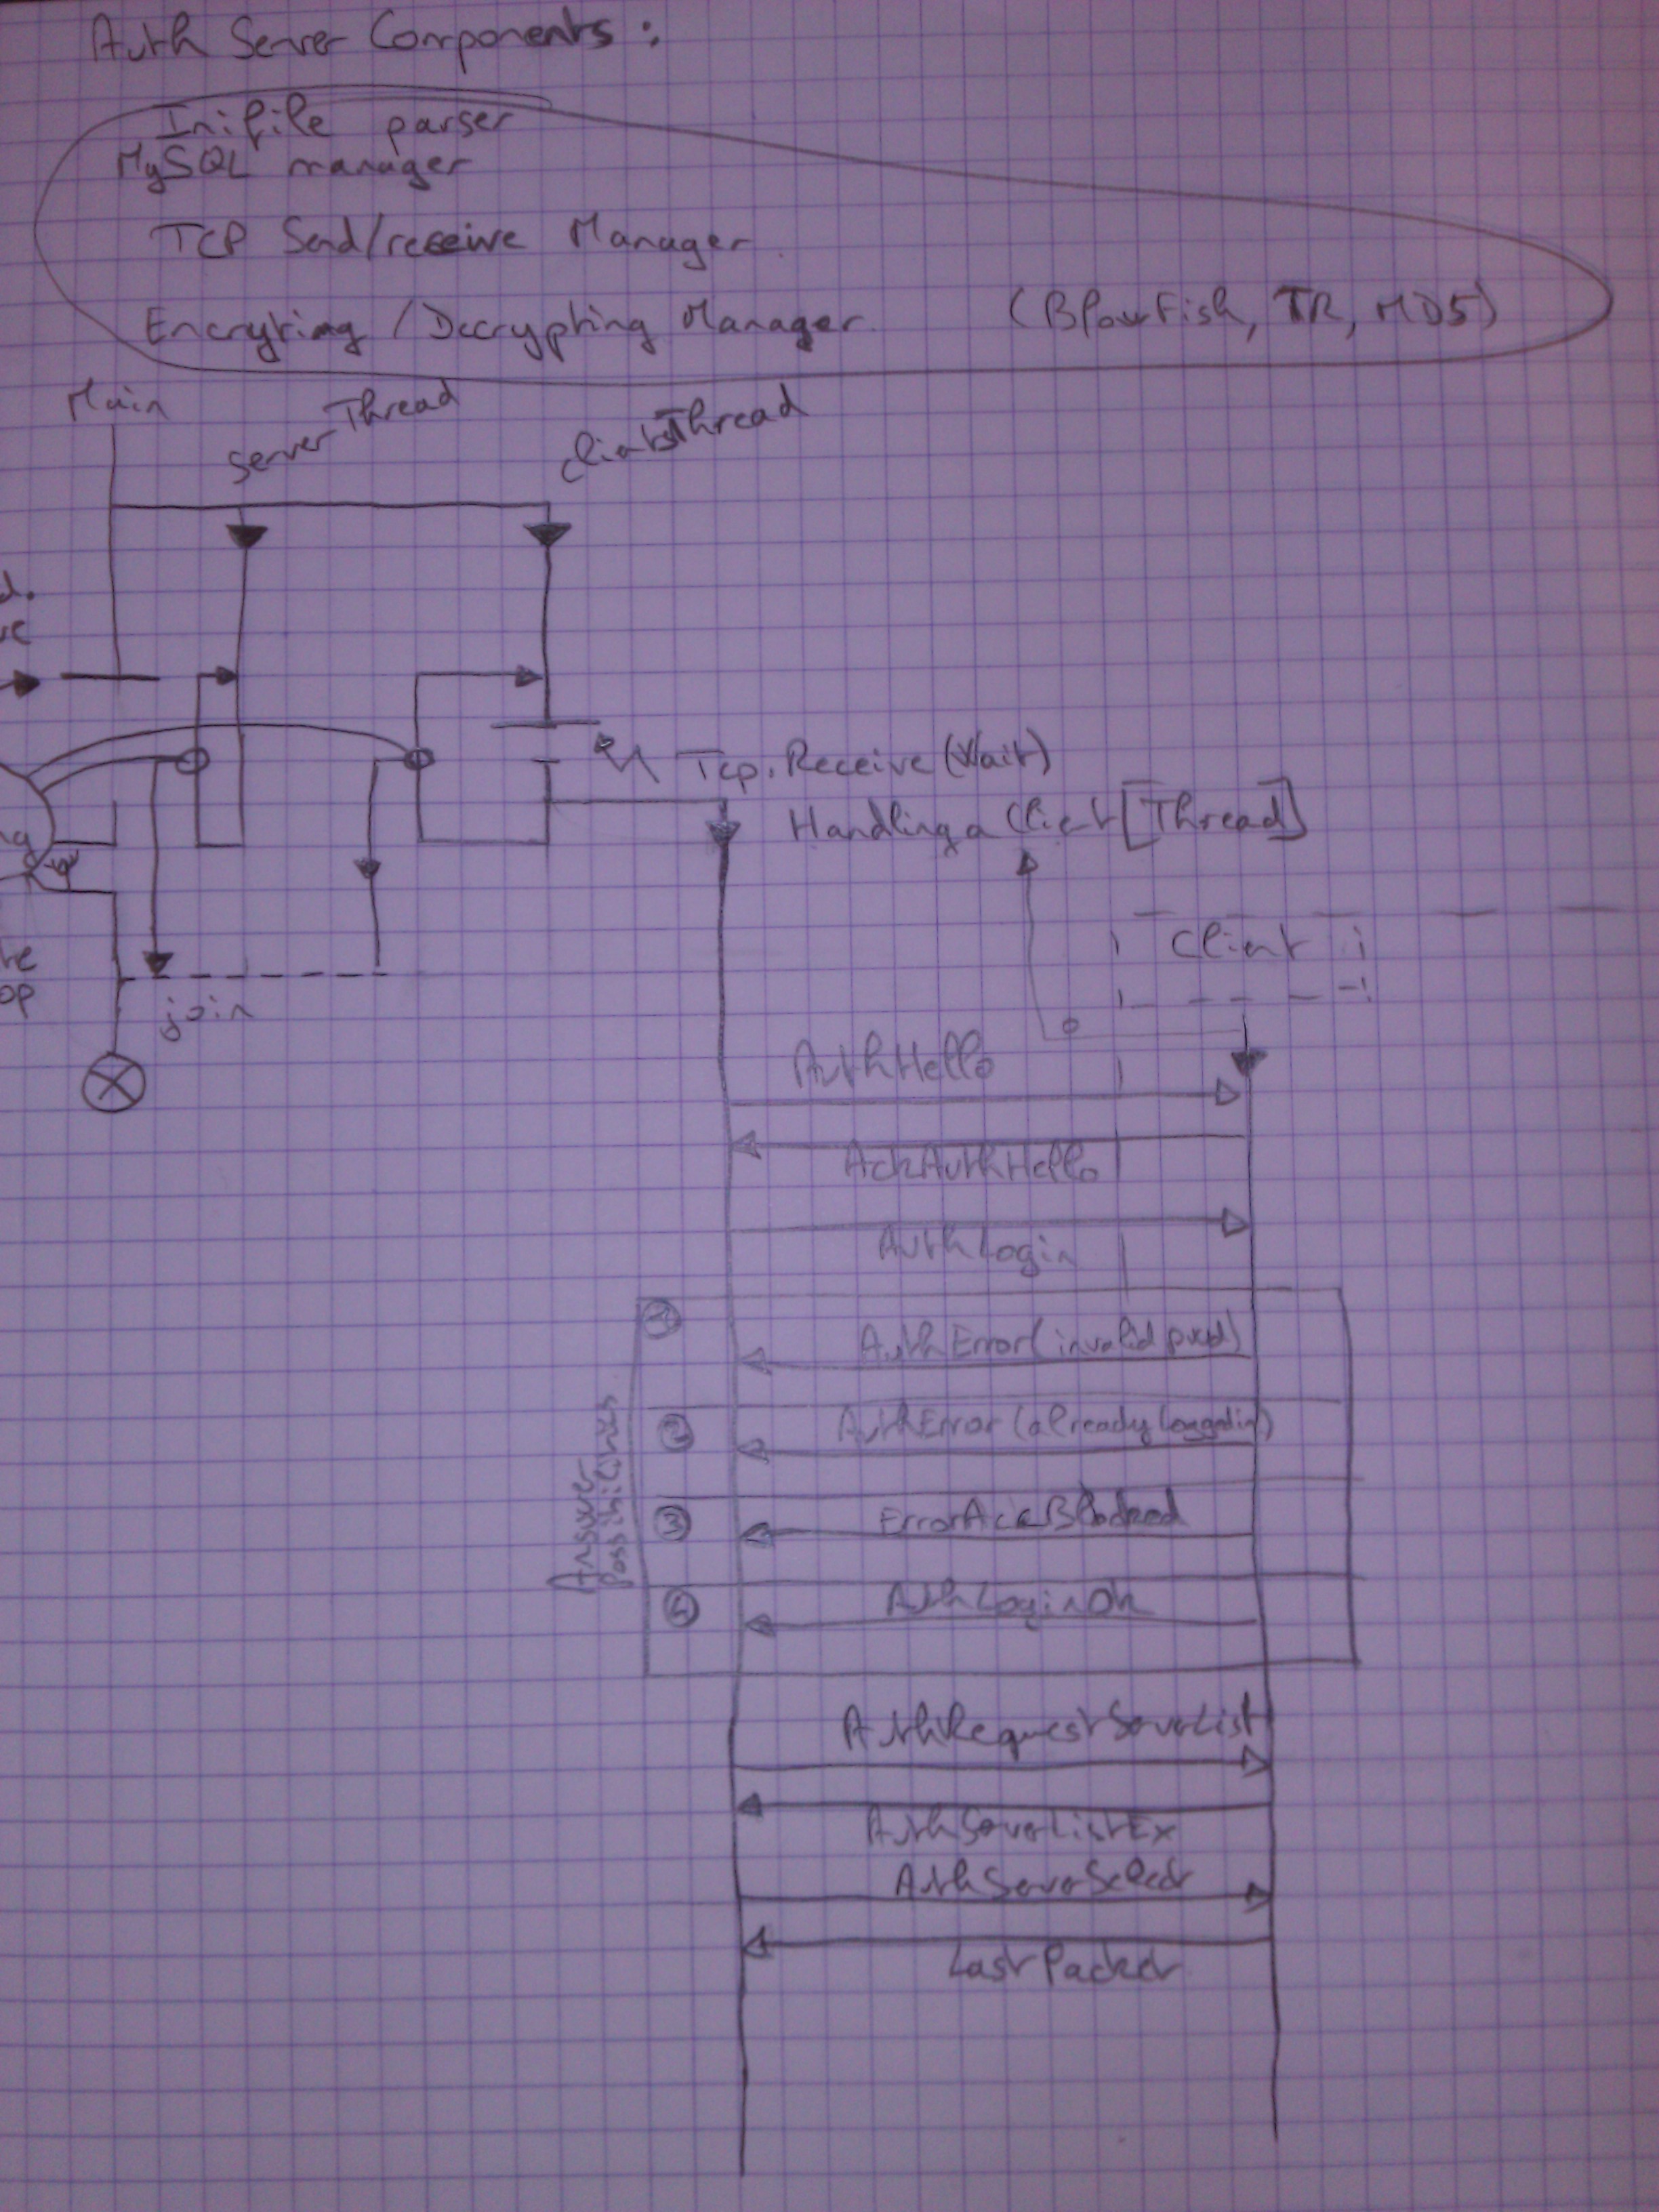 Auth Server Components :
Inifile parser
MySQL manager
TCP Send/receive Manager
Encryting / Decrypting Manager (BlowFish, TR, MD5)
Main
server Thread
clientsThread
d.
Tcp. Receive (Wait)
Handling a Client [Thread]
ng
client
op
join
AuthHello
AckAuthHello
AuthLogin
AuthError (invalid pwd)
②
AuthError (already Loggedin)
Answer
Possibilities
③
ErrorAccBlocked
④
AuthLoginOk
AuthRequestServerList
AuthServerListEx
AuthServerSelect
Last Packet